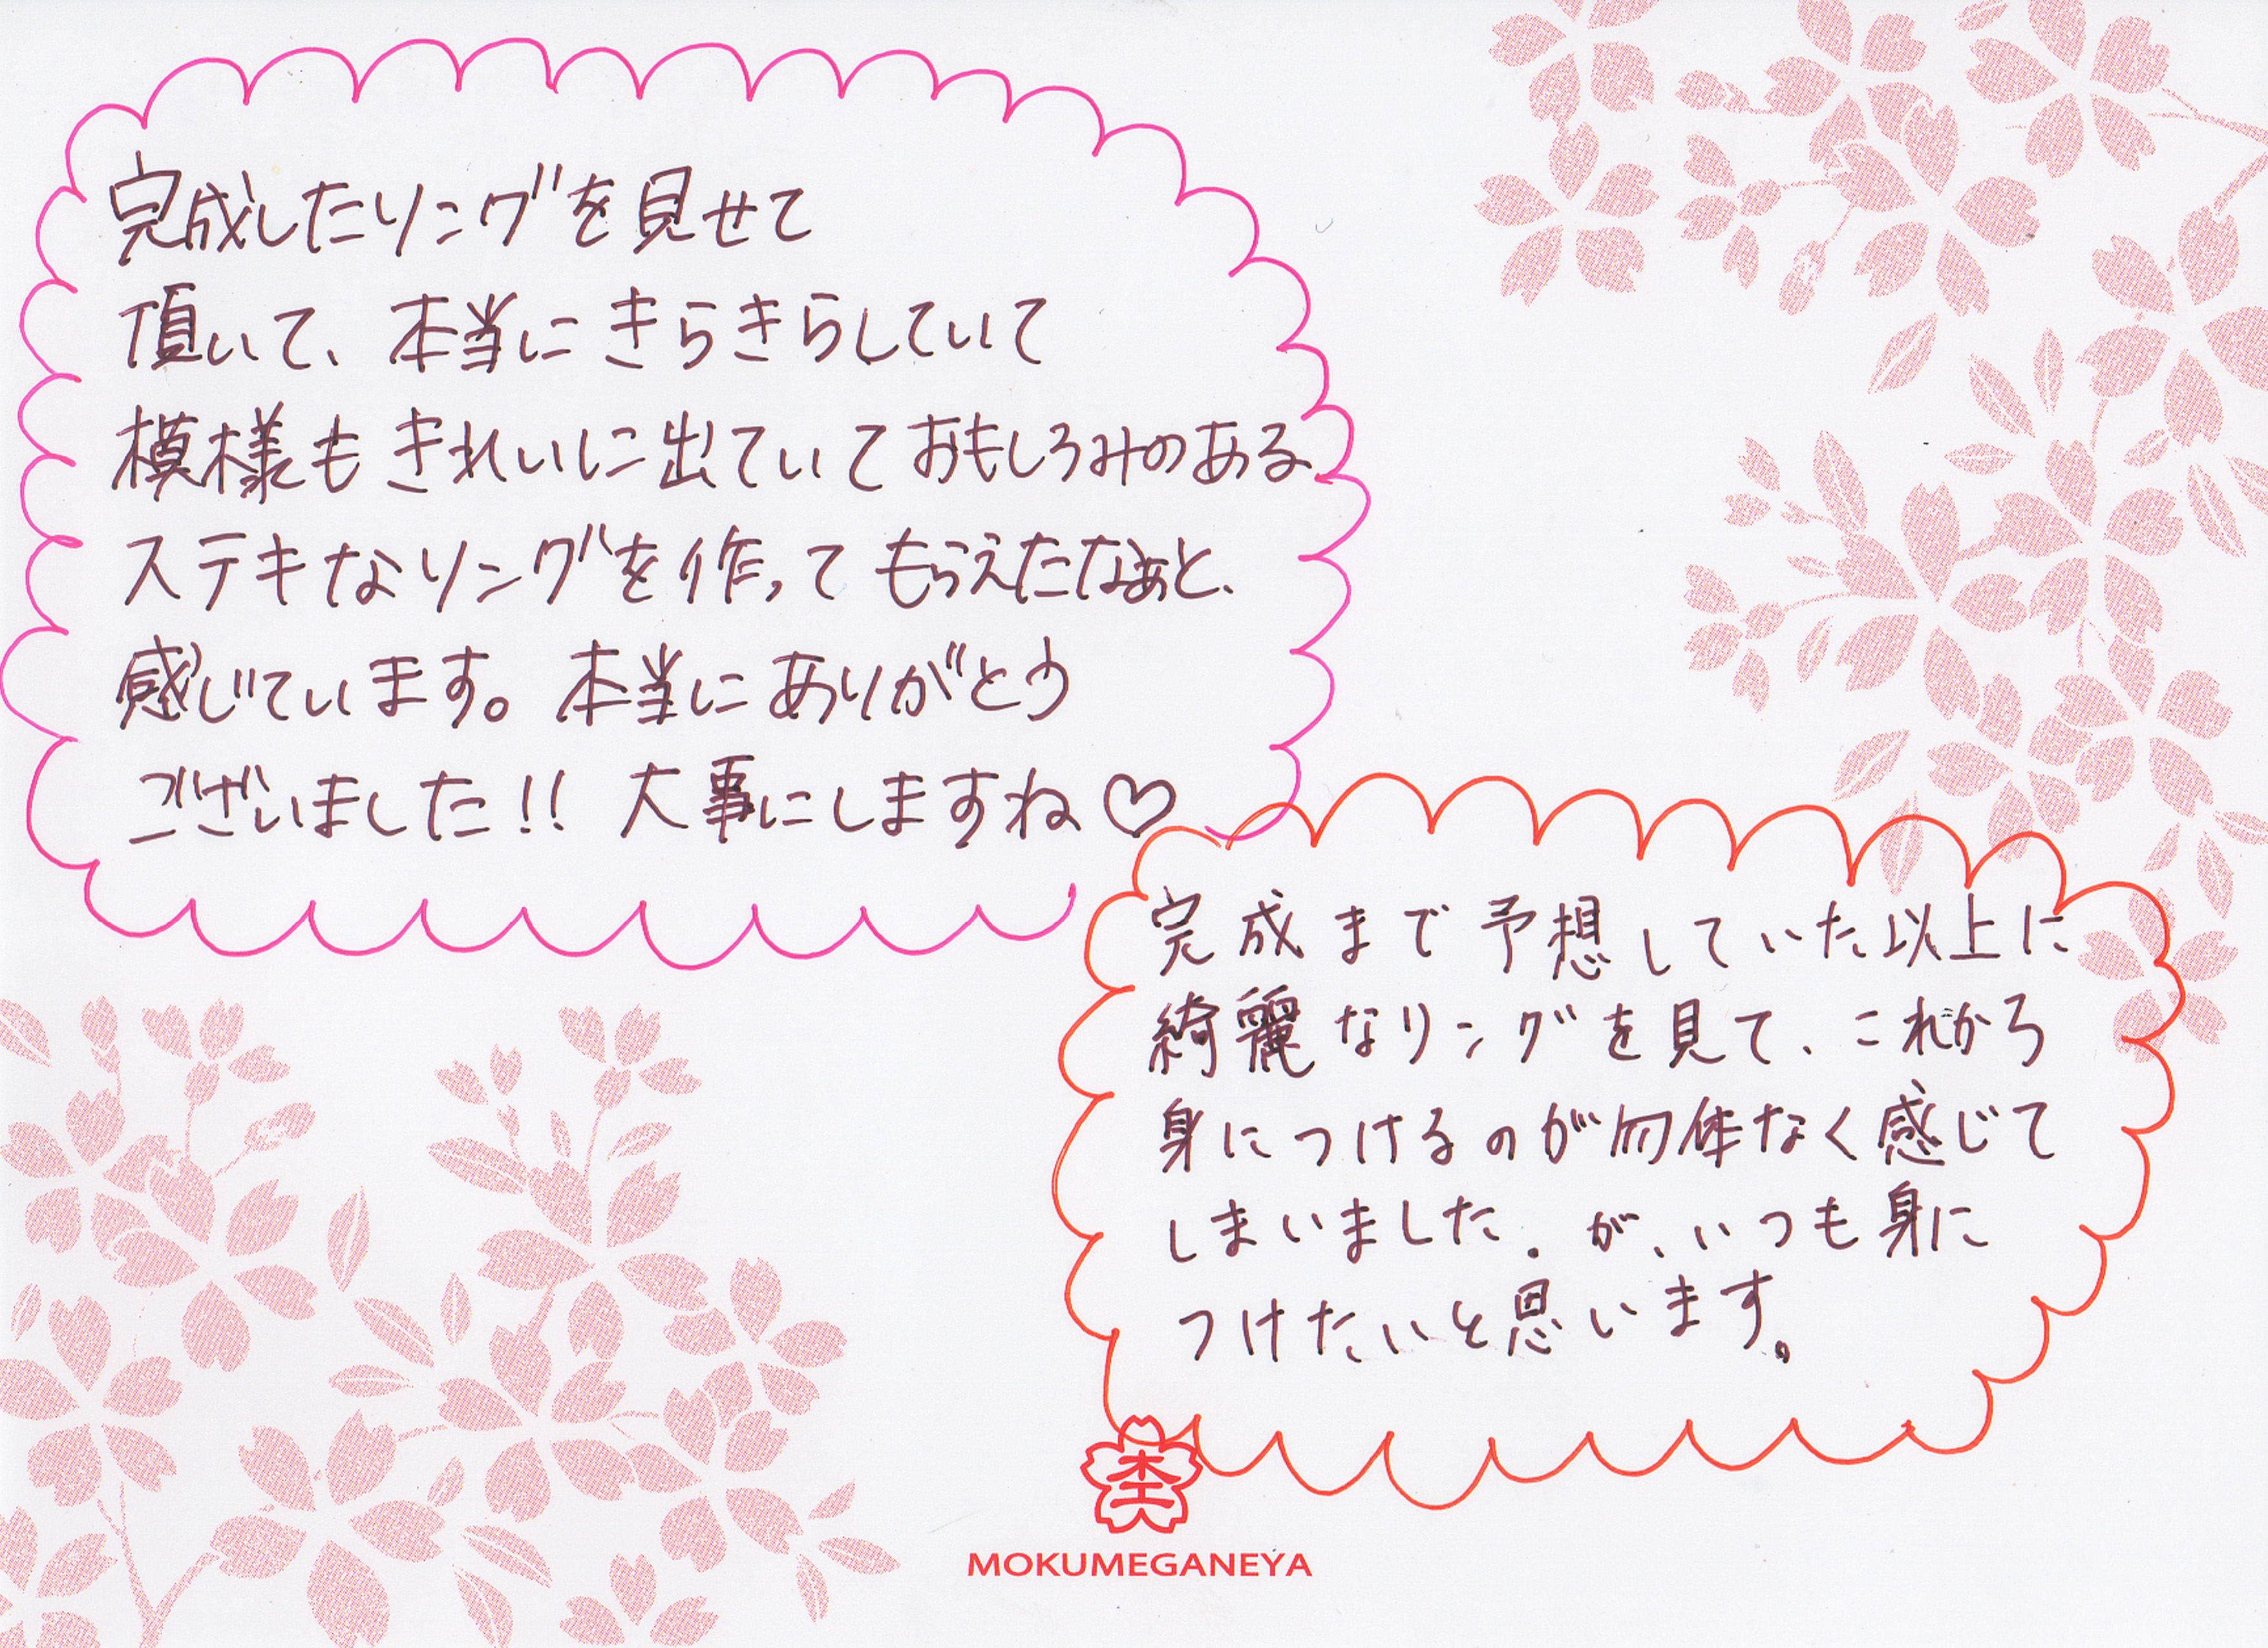 完成したリングを見せて
頂いて、本当にきらきらしていて
模様もきれいに出ていておもしろみのある
ステキなリングを作ってもらえたなぁと、
感じています。本当にありがとう
ございました!! 大事にしますね♡
完成まで予想していた以上に
綺麗なリングを見て、これから
身につけるのが勿体なく感じて
しまいました。が、いつも身に
つけたいと思います。
杢
MOKUMEGANEYA